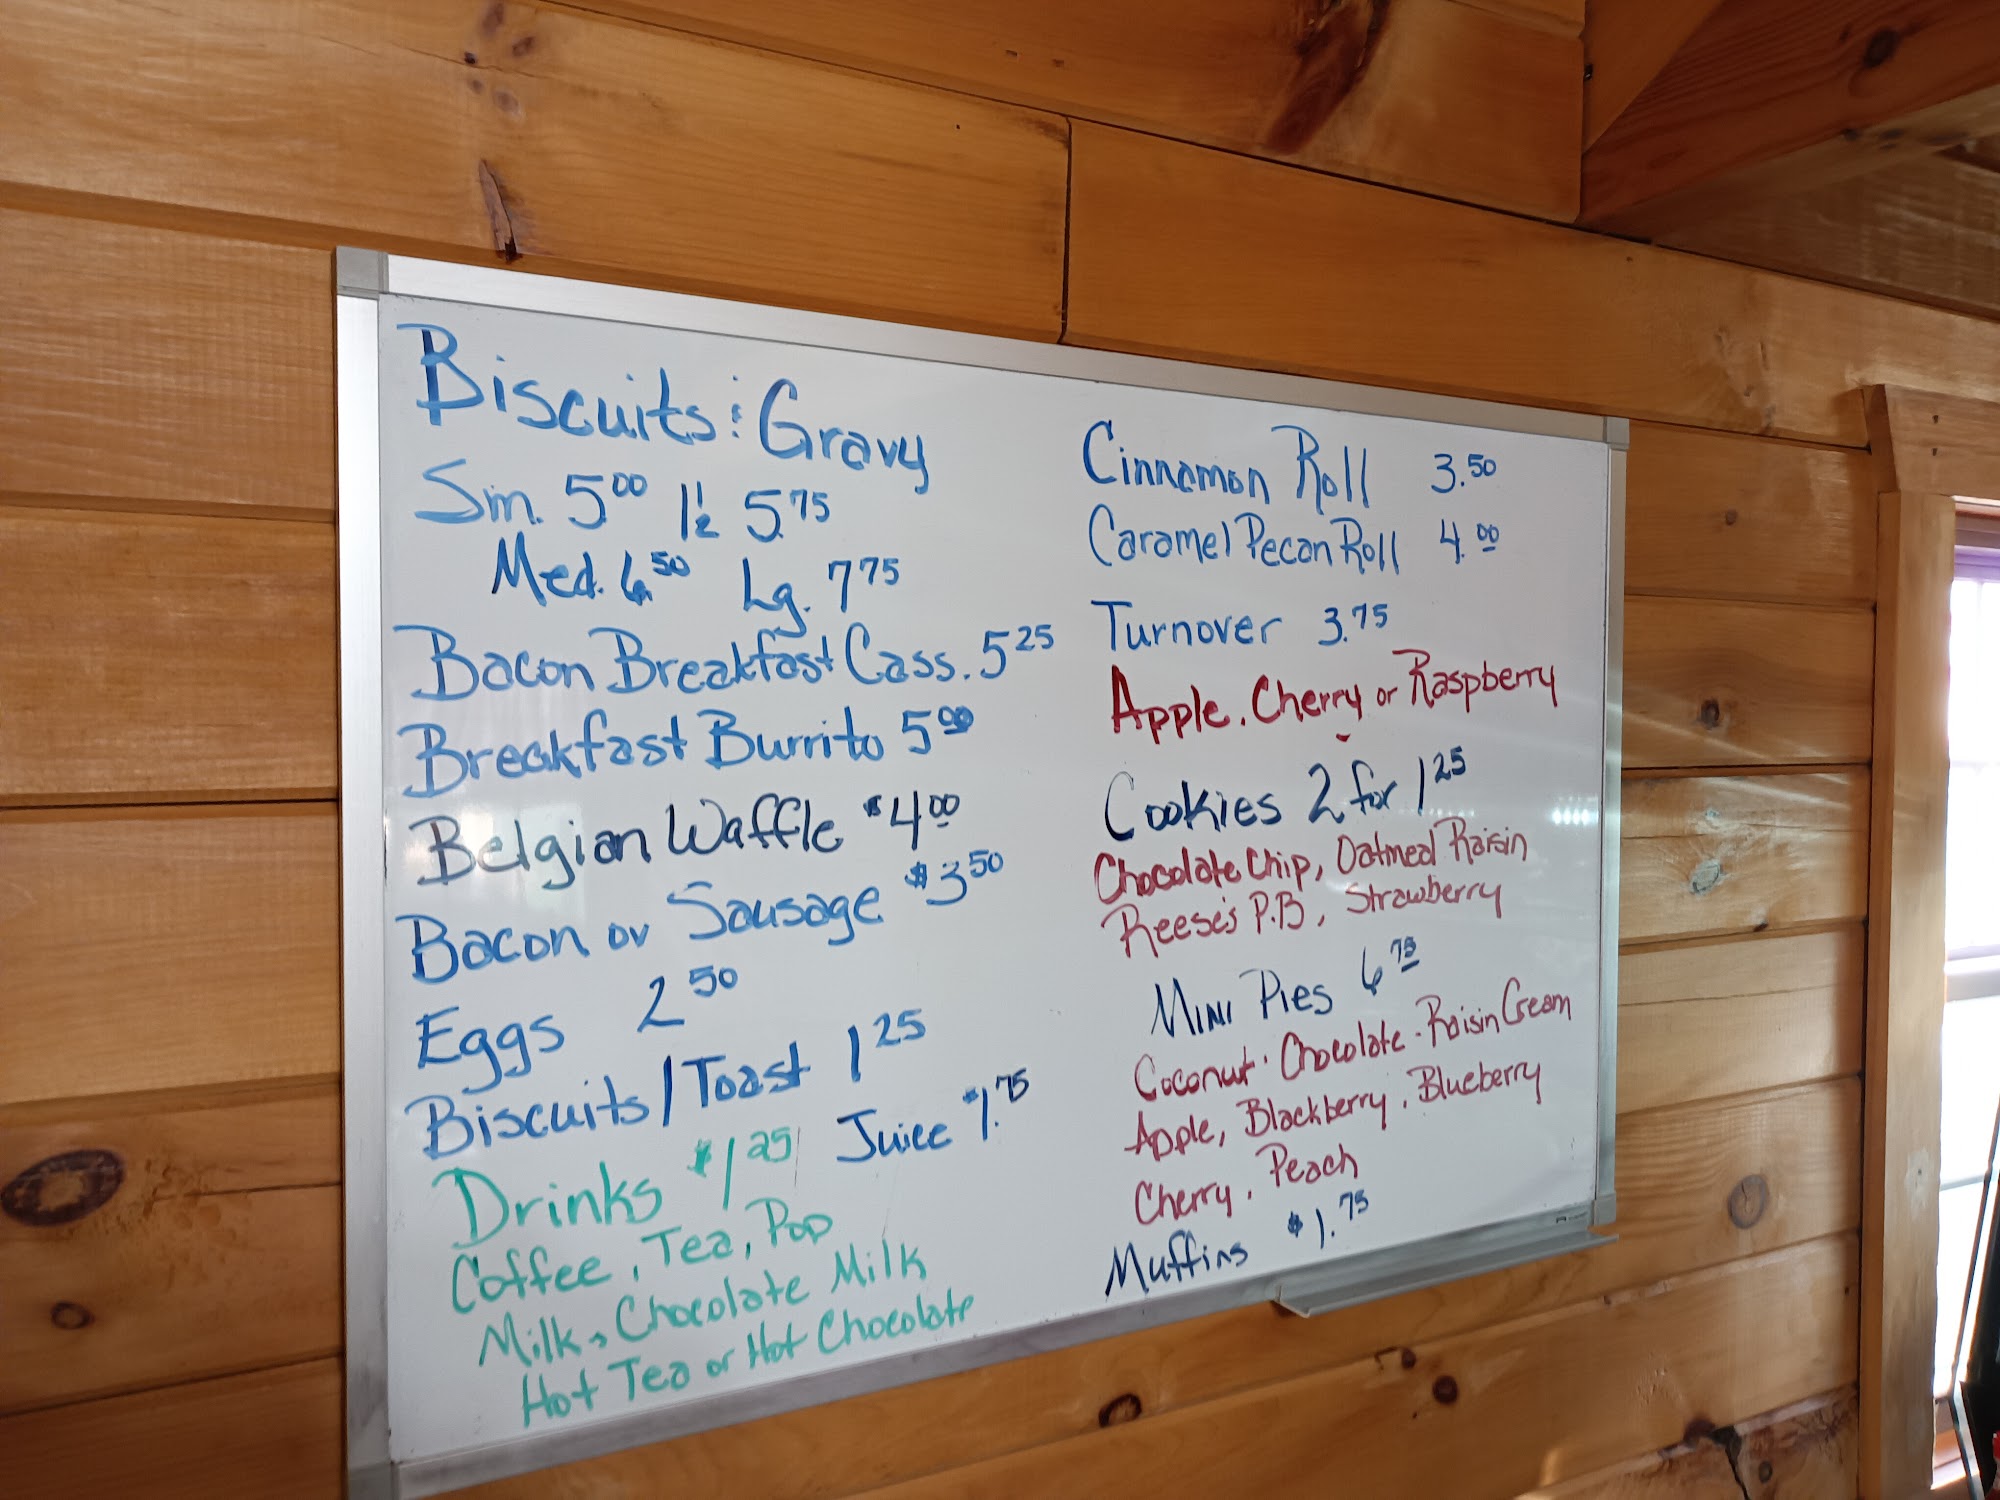 Biscuits & Gravy
Sm. 5.00 1½ 5.75
Med. 6.50 Lg. 7.75
Bacon Breakfast Cass. 5.25
Breakfast Burrito 5.00
Belgian Waffle $4.00
Bacon or Sausage $3.50
Eggs 2.50
Biscuits/Toast 1.25
Juice $1.75
Drinks $1.25
Coffee, Tea, Pop
Milk, Chocolate Milk
Hot Tea or Hot Chocolate
Cinnamon Roll 3.50
Caramel Pecan Roll 4.00
Turnover 3.75
Apple, Cherry or Raspberry
Cookies 2 for 1.25
Chocolate Chip, Oatmeal Raisin
Reese's P.B, Strawberry
Mini Pies 6.75
Coconut · Chocolate · Raisin Cream
Apple, Blackberry, Blueberry
Cherry, Peach
Muffins $1.75